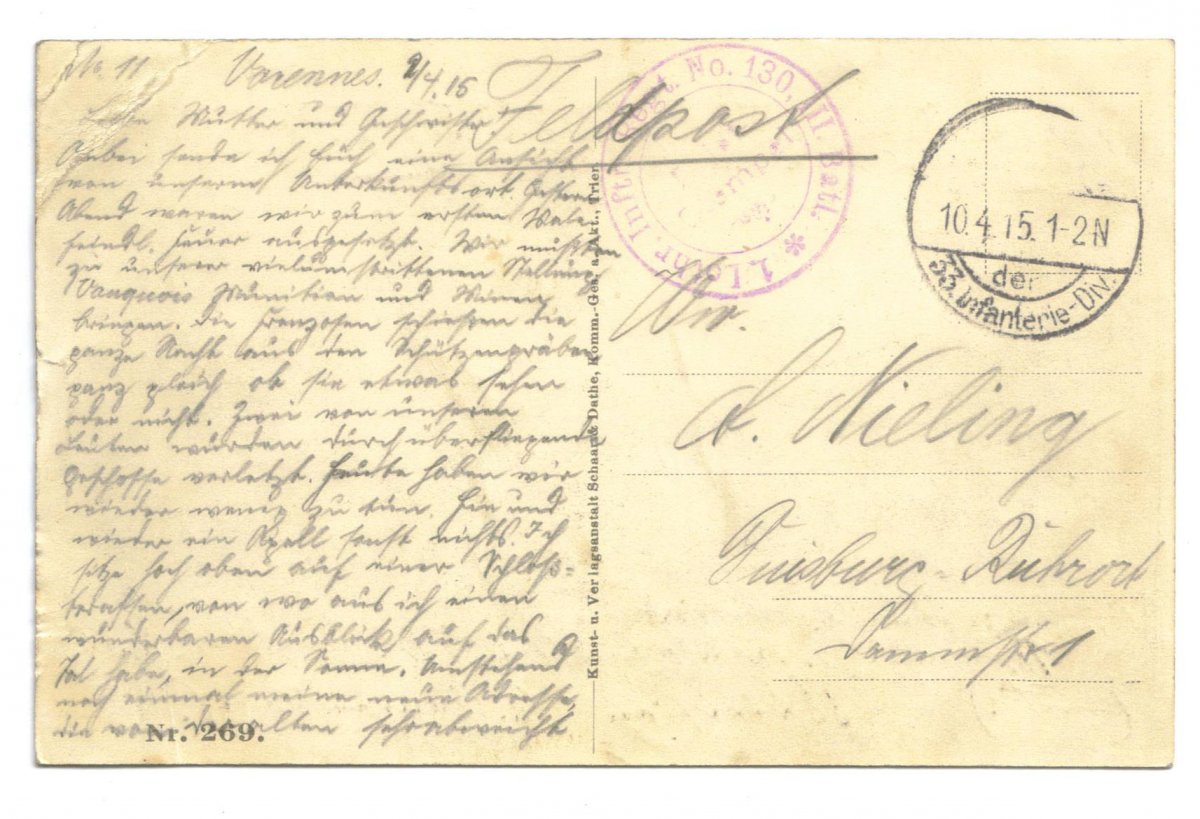 No. 11 Varennes. 9/4.15
Liebe Mutter und Geschwister
Anbei sende ich Euch eine Ansicht
von unserm Unterkunftsort. Gestern
Abend waren wir zum ersten Male
feindl. Feuer ausgesetzt. Wir mußten
zu unserer vielumstrittenen Stellung
Vauquois Munition und Minen
bringen. Die Franzosen schießen die
ganze Nacht aus den Schützengräben
ganz gleich ob sie etwas sehen
oder nicht. Zwei von unseren
Leuten wurden durch überfliegende
Geschosse verletzt. Heute haben wir
wieder wenig zu tun. Hin und
wieder ein Apell sonst nichts. Ich
sitze hoch oben auf einer Schloß-
terassen, von wo aus ich einen
wunderbaren Ausblick auf das
Tal habe, in der Sonne. Anstehend
noch einmal meine neue Adresse,
die von der alten sehr abweicht
Nr. 269.
Kunst- u. Verlagsanstalt Schaar & Dathe, Komm.-Ges. a. Akt., Trier.
Feldpost
1. Lothr. Inftr. Regt. No. 130, III Batl.
10.4.15.1-2N
der
33. Infanterie-Div.
Nieling
Duisburg-Ruhrort
Dammstr 1